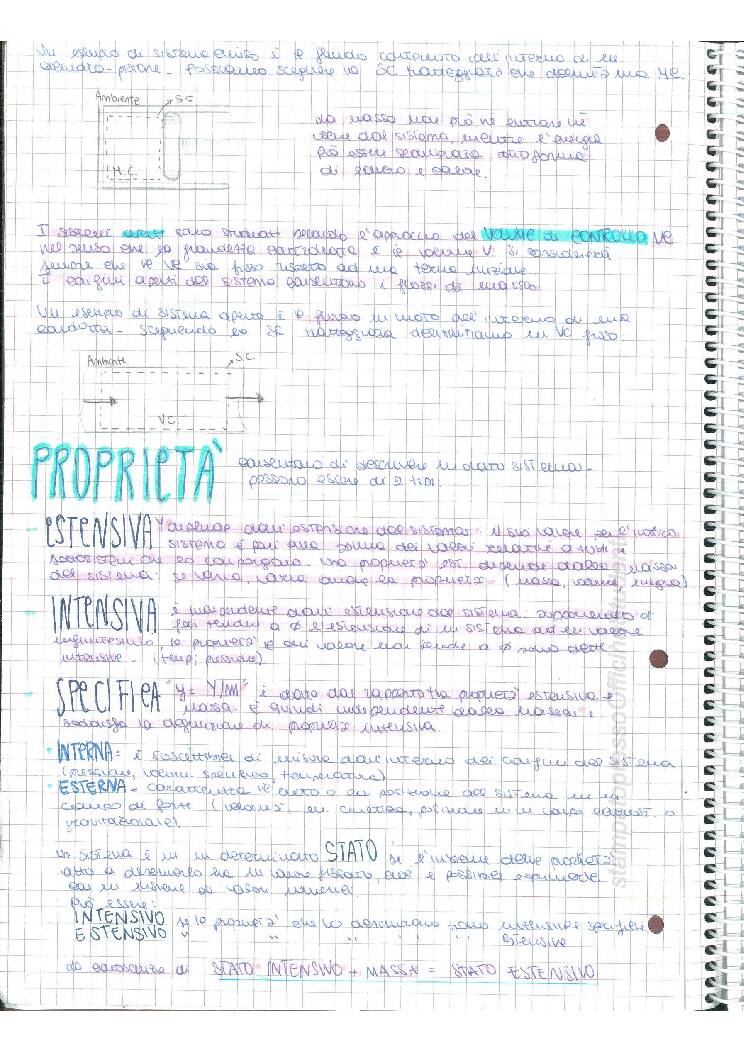 Un esempio di sistema chiuso è il fluido contenuto all'interno di un
cilindro-pistone. Possiamo scegliere la SC tratteggiata che delimita una MC
Ambiente SC
M.C.
La massa non può né entrare né
uscire dal sistema, mentre l'energia
può essere scambiata sotto forma
di lavoro e calore.
I sistemi aperti sono studiati secondo l'approccio del VOLUME DI CONTROLLO VC
nel senso che la grandezza controllata è il volume V. Si considererà
sempre che il VC sia fisso rispetto ad una terna inerziale
I confini aperti del sistema consentono i flussi di massa
Un esempio di sistema aperto è il fluido in moto all'interno di una
condotta. Scegliendo la SC tratteggiata delimitiamo un VC fisso.
Ambiente S.C.
VC.
PROPRIETÀ consentono di descrivere un dato sistema.
possono essere di 2 tipi.
- ESTENSIVA Y dipende dall'estensione del sistema: il suo valore per l'intero
sistema è pari alla somma dei valori relativi a tutti i
sottosistemi che lo compongono. Una proprietà est. dipende dalla massa
del sistema: se varia, varia anche la proprietà. (massa, volume, energia)
- INTENSIVA è indipendente dall'estensione del sistema. Supponendo di
far tendere a Ø l'estensione di un sistema ad un valore
infinitesimo, le proprietà il cui valore non tende a Ø sono dette
intensive. (temp, pressione)
- SPECIFICA "y = Y/M" è data dal rapporto tra proprietà estensiva e
massa. È quindi indipendente dalla massa:
soddisfa la definizione di proprietà intensiva.
• INTERNA: è suscettibile di misura dall'interno dei confini del sistema
(pressione, volume specifico, temperatura)
• ESTERNA - caratterizza il moto o la posizione del sistema in un
campo di forze (velocità, en. cinetica, potenziale in un campo elettrost. o
gravitazionale).
Un sistema è in un determinato STATO se l'insieme delle proprietà
atte a descriverlo ha un valore fissato, cioè è possibile esprimerle
con un insieme di valori numerici
Può essere:
INTENSIVO se le proprietà che lo descrivono sono intensive e specifiche
ESTENSIVO " " " " " " estensive
La conoscenza di STATO INTENSIVO + MASSA = STATO ESTENSIVO
stampato presso Officina Studenti